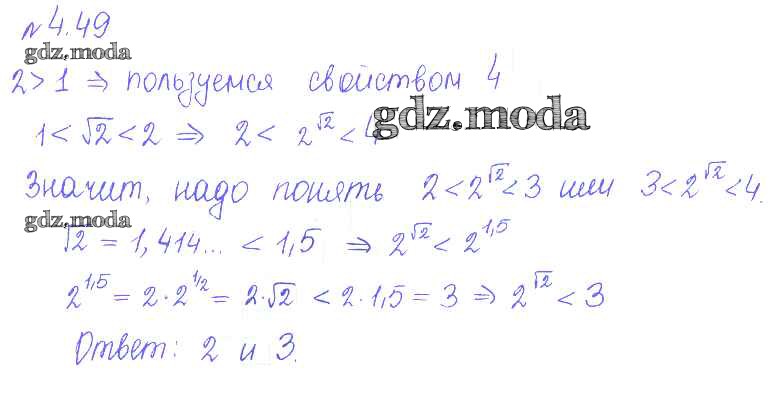 № 4.49
gdz.moda
2 > 1 ⇒ пользуемся свойством 4
gdz.moda
1 < √2 < 2 ⇒ 2 < 2^√2 < 4
Значит, надо понять 2 < 2^√2 < 3 или 3 < 2^√2 < 4.
gdz.moda
√2 = 1,414... < 1,5 ⇒ 2^√2 < 2^1,5
2^1,5 = 2 · 2^1/2 = 2 · √2 < 2 · 1,5 = 3 ⇒ 2^√2 < 3
Ответ: 2 и 3.